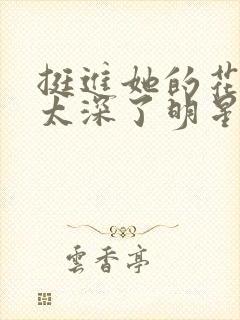 挺进她的花
太深了明星
雲香亭